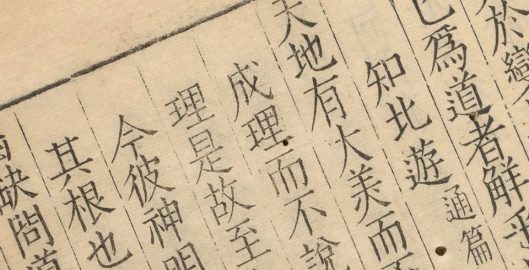 於
爲道者解乎
知北遊通篇
天地有大美而
成理而不說
理是故至
今彼神明
其根也
缺問道